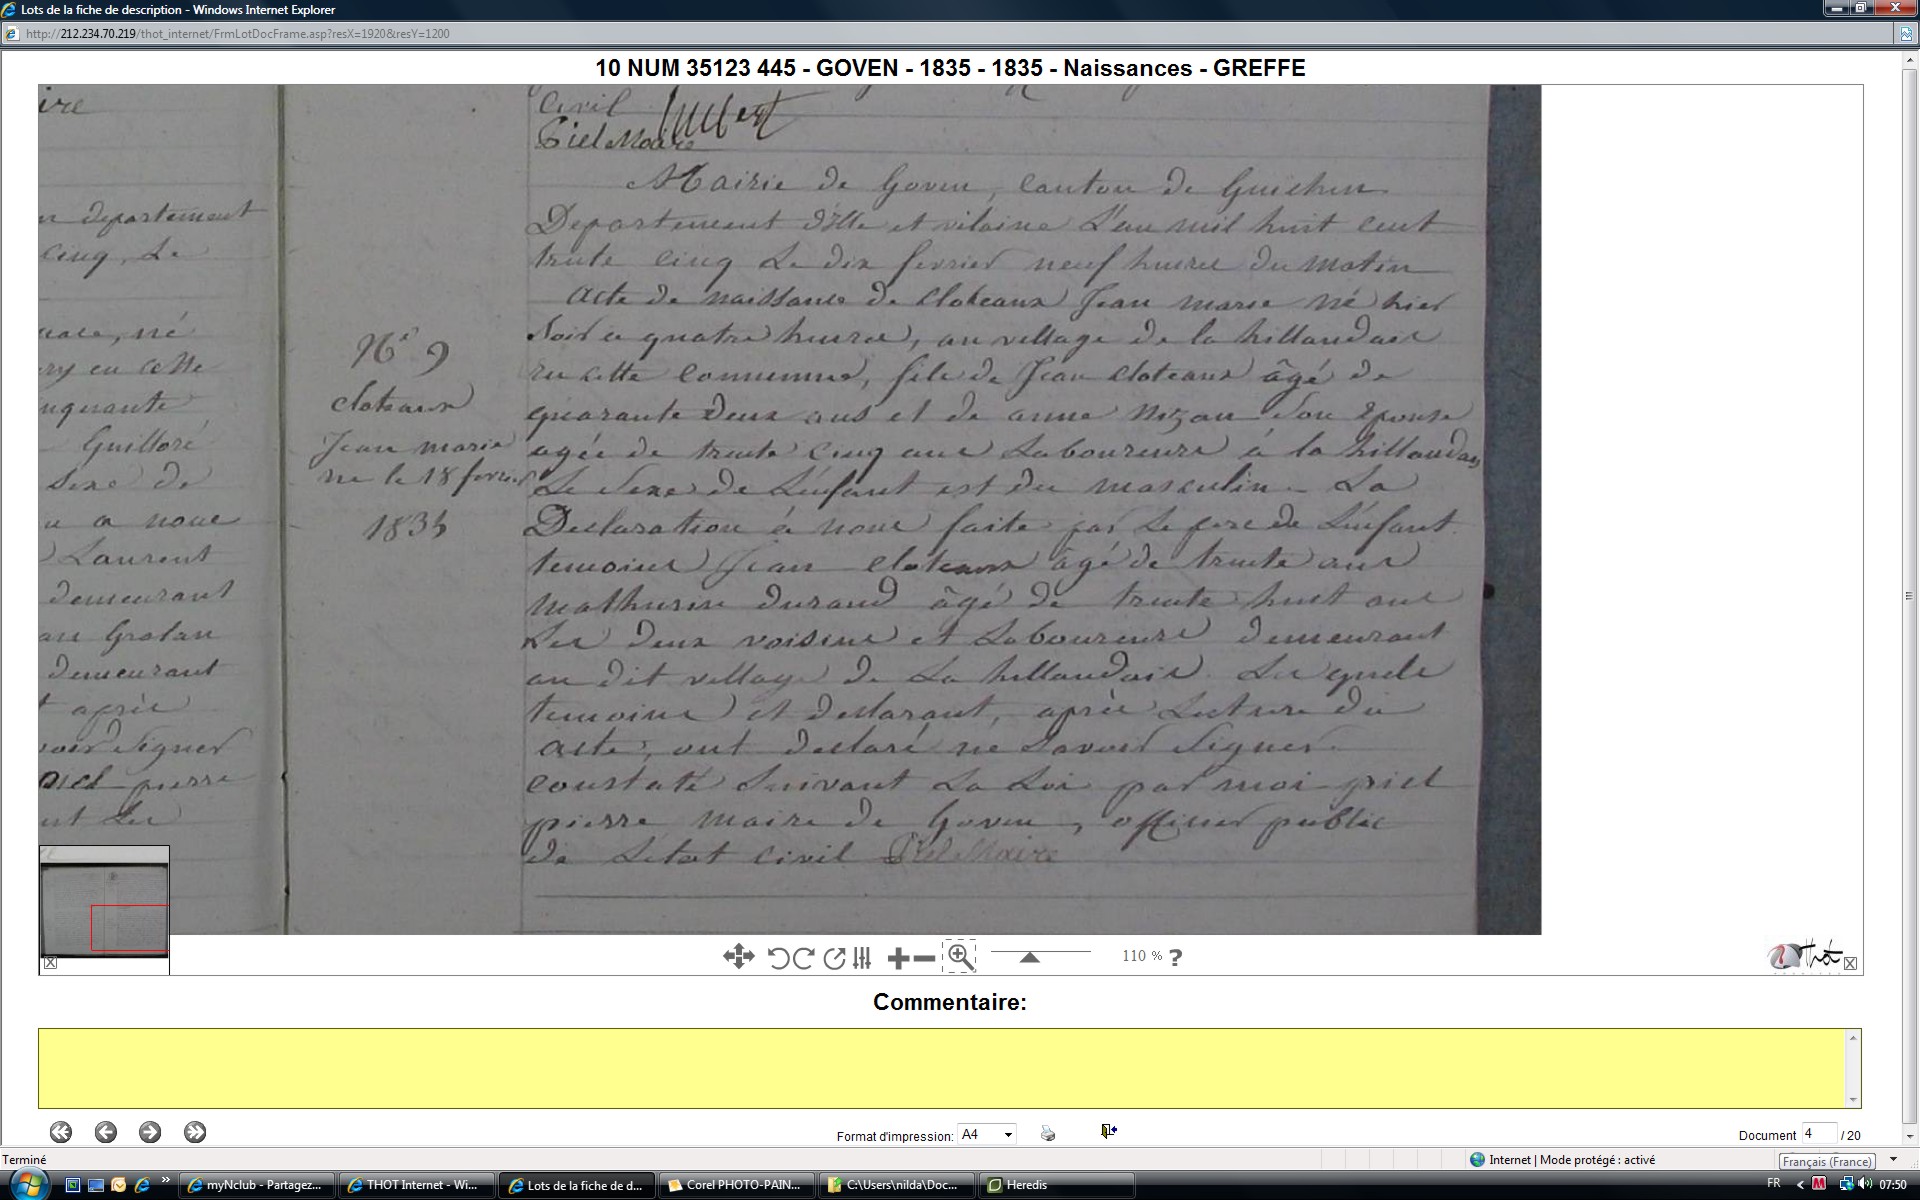 Lots de la fiche de description - Windows Internet Explorer
http://212.234.70.219/thot_internet/FrmLotDocFrame.asp?resX=1920&resY=1200
10 NUM 35123 445 - GOVEN - 1835 - 1835 - Naissances - GREFFE
ire
n departement
cinq, Le
né
en cette
nquante
Guilloré
Sexe de
a nous
Laurent
demeurant
Grolau
demeurant
t après
Signer
piel pierre
Les
N° 9
cloteaux
Jean marie
né le 18 fevrier
1835
Civil
Piel Maire
Mairie de Goven, Canton de Guichen
Departement d'Ille et vilaine L'an mil huit cent
trente cinq Le dix fevrier neuf heures du matin
Acte de naissance de cloteaux Jean marie né hier
Soir a quatre heures, au village de la hillandais
en cette commune, fils de Jean cloteaux âgé de
quarante deux ans et de anne Nizan Son Epouse
agée de trente cinq ans Laboureurs à la hillandais
Le Sexe de L'enfant est du masculin. La
Declaration à nous faite par Le pere de L'enfant
temoins Jean cloteaux âgé de trente ans
Mathurin durand âgé de trente huit ans
Les deux voisins et Laboureurs demeurant
au dit village de La hillandais. Les quels
temoins et declarant, après Lecture du
acte, ont declaré ne Savoir Signer.
constaté Suivant La Loi par moi piel
pierre maire de Goven, officier public
de L'etat civil Piel Maire
110 % ?
Thot
Commentaire:
Format d'impression: A4
Document 4 / 20
Terminé
Internet | Mode protégé : activé
Français (France)
myNclub - Partagez...
THOT Internet - Wi...
Lots de la fiche de d...
Corel PHOTO-PAIN...
C:\Users\nilda\Doc...
Heredis
FR
07:50